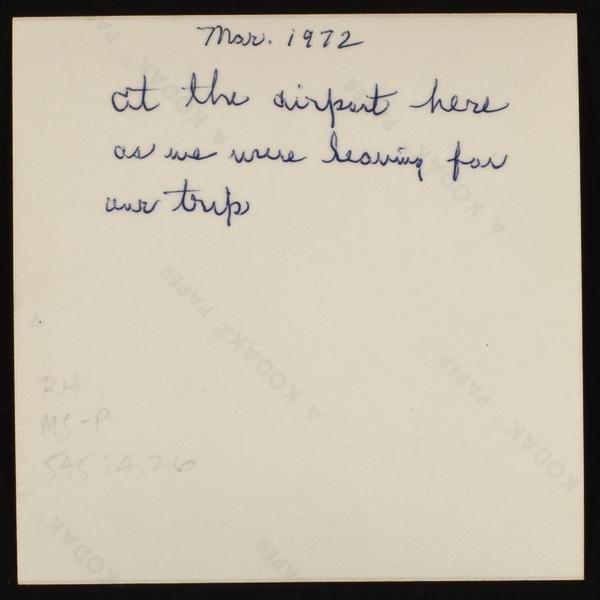 Mar. 1972
at the airport here
as we were leaving for
our trip
RH
MS-P
545:4.26
A KODAK PAPER
A KODAK PAPER
A KODAK PAPER
A KODAK PAPER
KODAK
PAPER